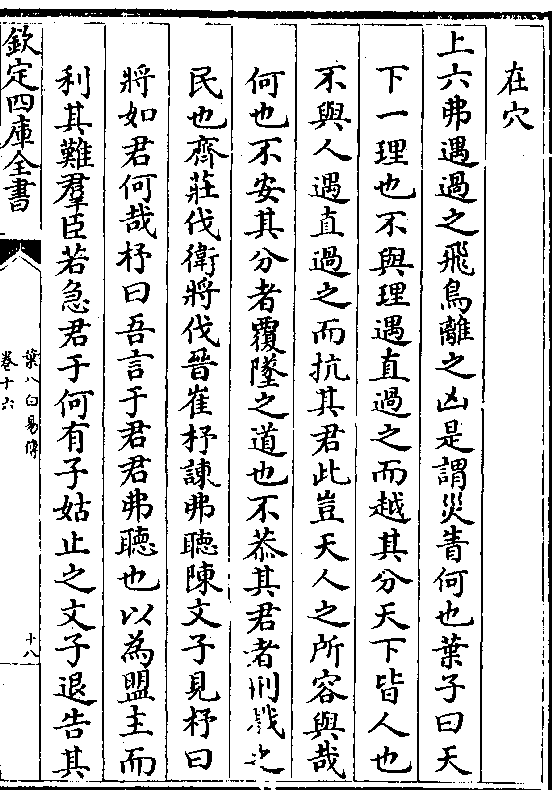 在穴
上六弗遇過之飛鳥離之凶是謂災眚何也葉子曰天
下一理也不與理遇直過之而越其分天下皆人也
不與人遇直過之而抗其君此豈天人之所容與哉
何也不安其分者覆墜之道也不恭其君者刑戮之
民也齊莊伐衛將伐晉崔杼諫弗聽陳文子見杼曰
將如君何哉杼曰吾言于君君弗聽也以為盟主而
利其難羣臣若急君于何有子姑止之文子退告其
欽定四庫全書
葉八白易傳
卷十六
十八